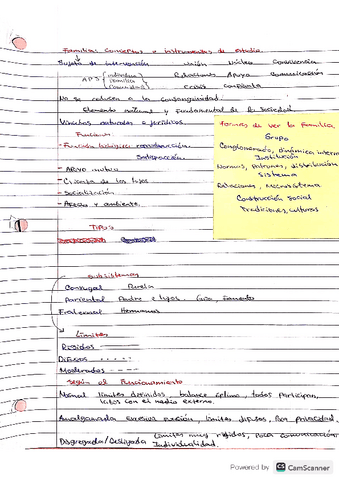 Familia: Conceptos e instrumentos de estudio
Sujeto de intervención unión Núcleo Convivencia
APS (individuo Relaciones Apoyo Comunicación
familia
comunidad) crisis
No se reducen a la consanguinidad.
Elemento natural y fundamental de la Sociedad
Vínculos naturales o jurídicos.
Funciones
- Función biológica reproducción.
Satisfacción.
- Apoyo mutuo
- Crianza de los hijos
- Socialización
- Afecto y ambiente.
Formas de ver la Familia,
Grupo
Conglomerado, Dinámica interna
Institución
Normas, Patrones, distribución
sistema
Relaciones, Macrosistema
Construcción social
Tradiciones, culturas
Tipos
Subsistemas
Conyugal Pareja
Parental Padre e hijos. Guía, fomento
Fraternal Hermanos
Límites
Rígidos
Difusos - - - -
Moderados - - - -
Según el Funcionamiento
Normal límites definidos, balance óptimo, todos participan,
lazos con el medio externo.
Amalgamada excesiva unión, límites difusos, Poca privacidad.
Límites muy rígidos, Poca comunicación
Disgregada/Desligada Individualidad.
Powered by CS CamScanner